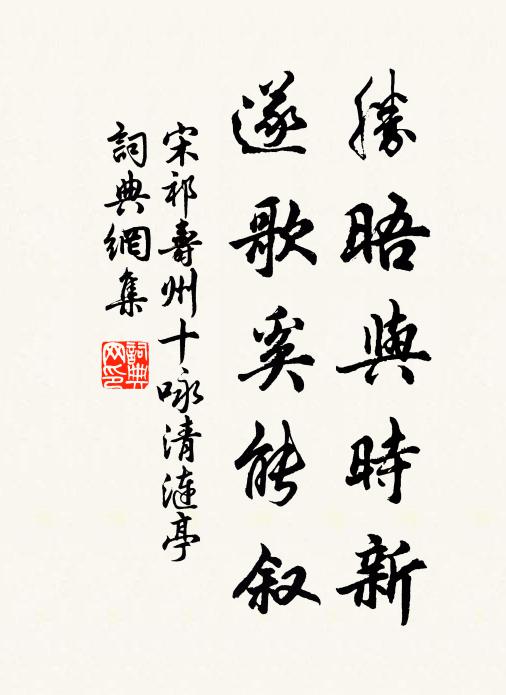 勝晤與時新
遂歌奚能叙
宋祁壽州十咏清漣亭
詞典網集
詞典网印